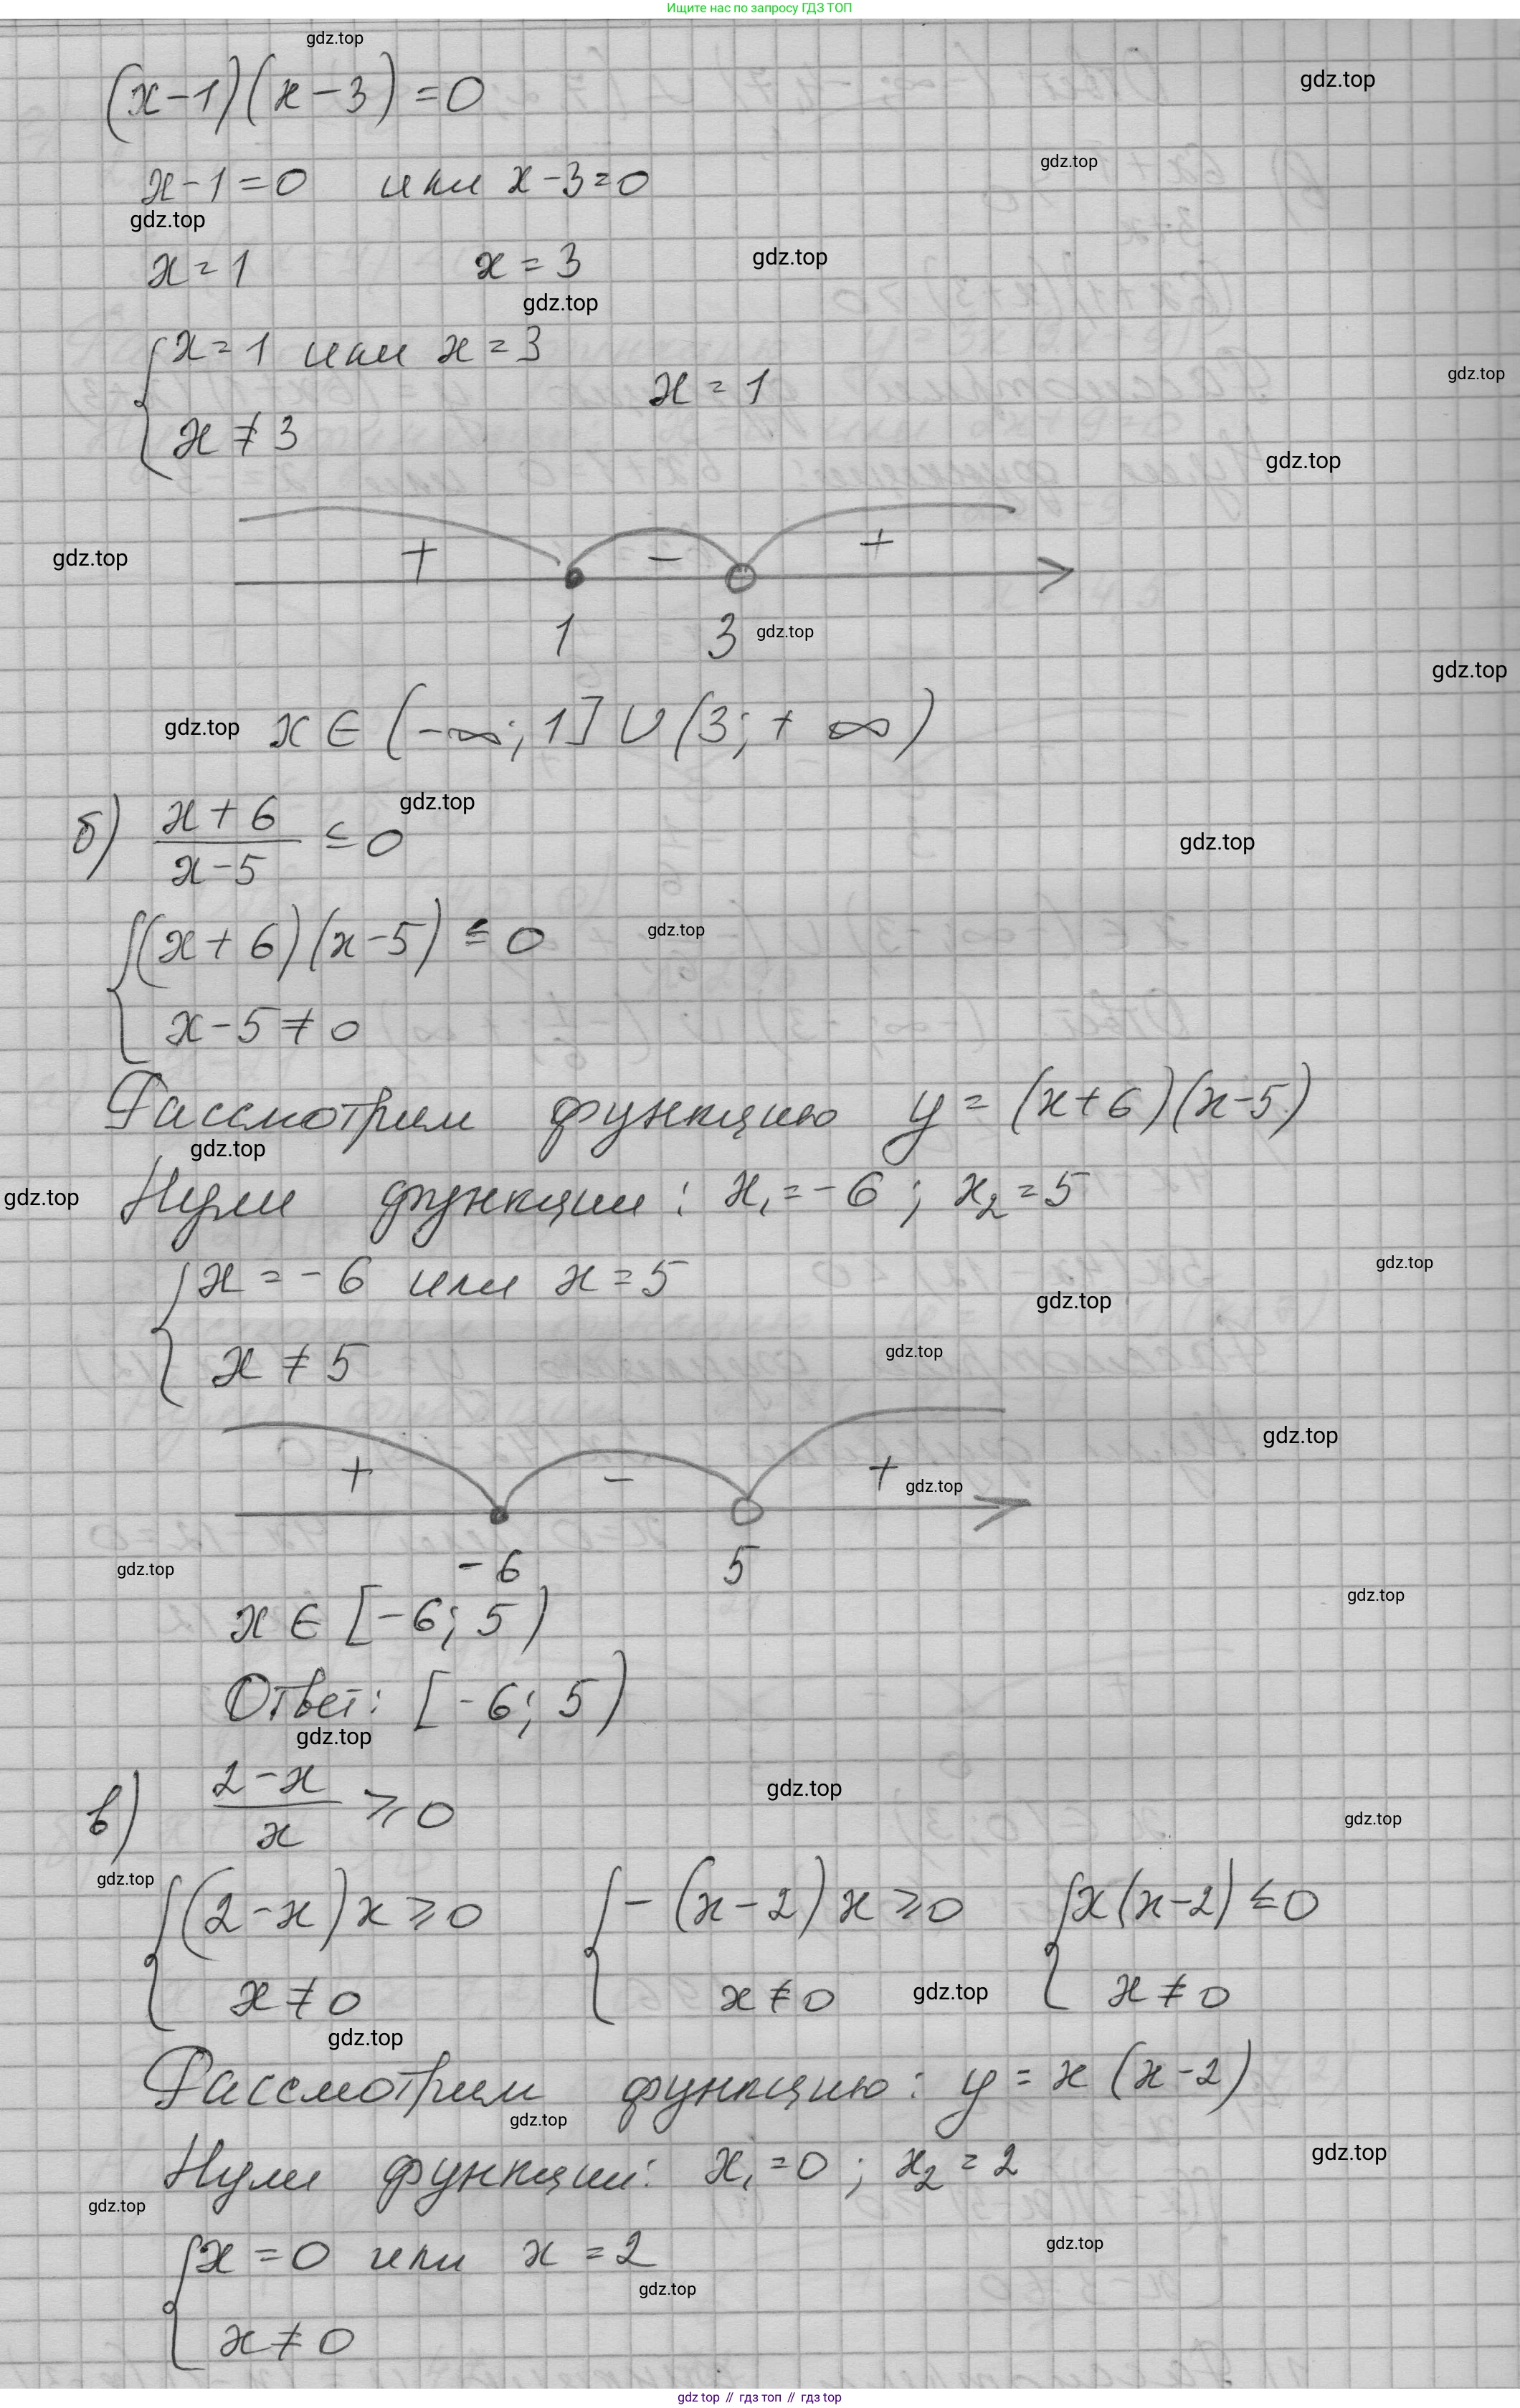 Ищите нас по запросу ГДЗ ТОП
gdz.top
(x-1)(x-3)=0
gdz.top
gdz.top
x-1=0 или x-3=0
gdz.top
x=1 x=3
gdz.top
gdz.top
{ x=1 или x=3
x≠3
x=1
gdz.top
gdz.top
+ - +
gdz.top
1 3
gdz.top
gdz.top
gdz.top
x∈(-∞; 1]∪(3; +∞)
gdz.top
б) (x+6)/(x-5) ≤ 0
gdz.top
{ (x+6)(x-5) ≤ 0
gdz.top
x-5≠0
Рассмотрим функцию y=(x+6)(x-5)
gdz.top
gdz.top
Нули функции: x₁=-6; x₂=5
gdz.top
{ x=-6 или x=5
gdz.top
gdz.top
x≠5
gdz.top
+ - +
gdz.top
-6 5
gdz.top
gdz.top
x∈[-6; 5)
Ответ: [-6; 5)
gdz.top
в) (2-x)/x ≥ 0
gdz.top
gdz.top
gdz.top
{ (2-x)x ≥ 0 { -(x-2)x ≥ 0 { x(x-2) ≤ 0
x≠0 x≠0 gdz.top x≠0
gdz.top
Рассмотрим функцию: y=x(x-2)
gdz.top
gdz.top
Нули функции: x₁=0; x₂=2
gdz.top
gdz.top
{ x=0 или x=2
gdz.top
x≠0
gdz top // гдз топ // gdz.top